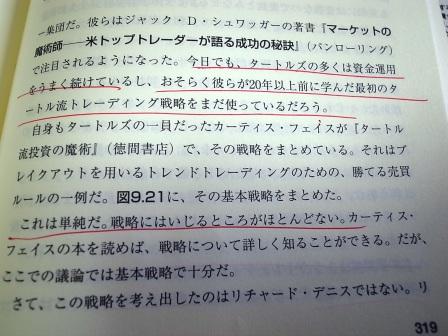 ー集団だ。彼らはジャック・D・シュワッガーの著書『マーケットの
魔術師――米トップトレーダーが語る成功の秘訣』(パンローリング)
で注目されるようになった。今日でも、タートルズの多くは資金運用
をうまく続けているし、おそらく彼らが20年以上前に学んだ最初のタ
ートル流トレーディング戦略をまだ使っているだろう。
自身もタートルズの一員だったカーティス・フェイスが『タートル
流投資の魔術』(徳間書店)で、その戦略をまとめている。それはブ
レイクアウトを用いるトレンドトレーディングのための、勝てる売買
ルールの一例だ。図9.21に、その基本戦略をまとめた。
これは単純だ。戦略にはいじるところがほとんどない。カーティス・
フェイスの本を読めば、戦略について詳しく知ることができる。だが、
ここでの議論では基本戦略で十分だ。
さて、この戦略を考え出したのはリチャード・デニスではない。リ
319